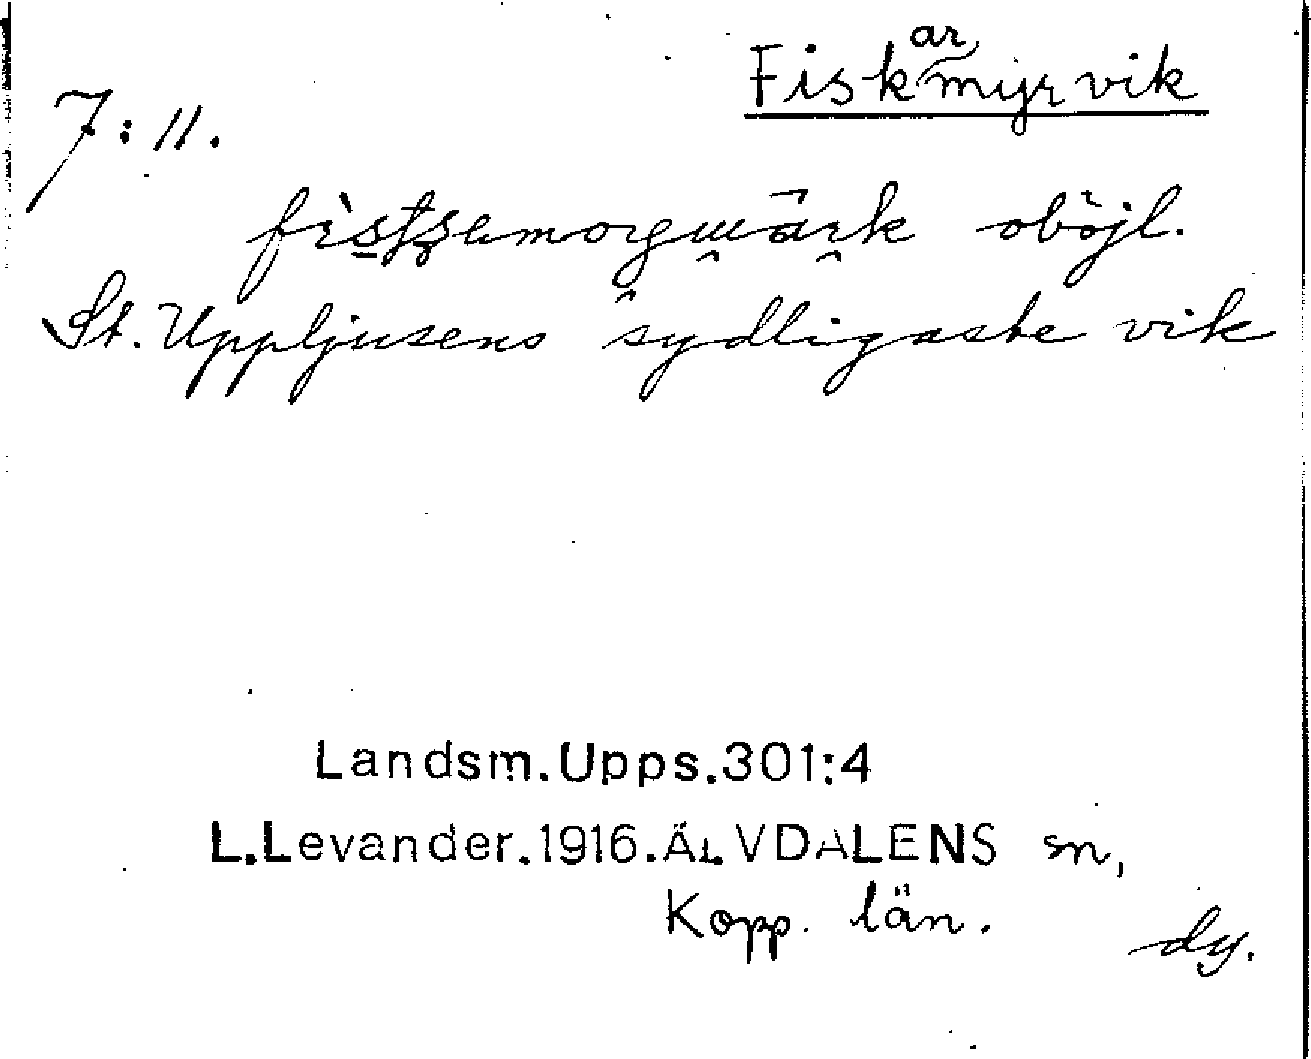 Fiskarmyrvik
7:11.
oböjl.
St. Uppljusens sydligaste vik
Landsm.Upps.301:4
L.Levander.1916.ÄLVDALENS sn,
Kopp. län.
dy.